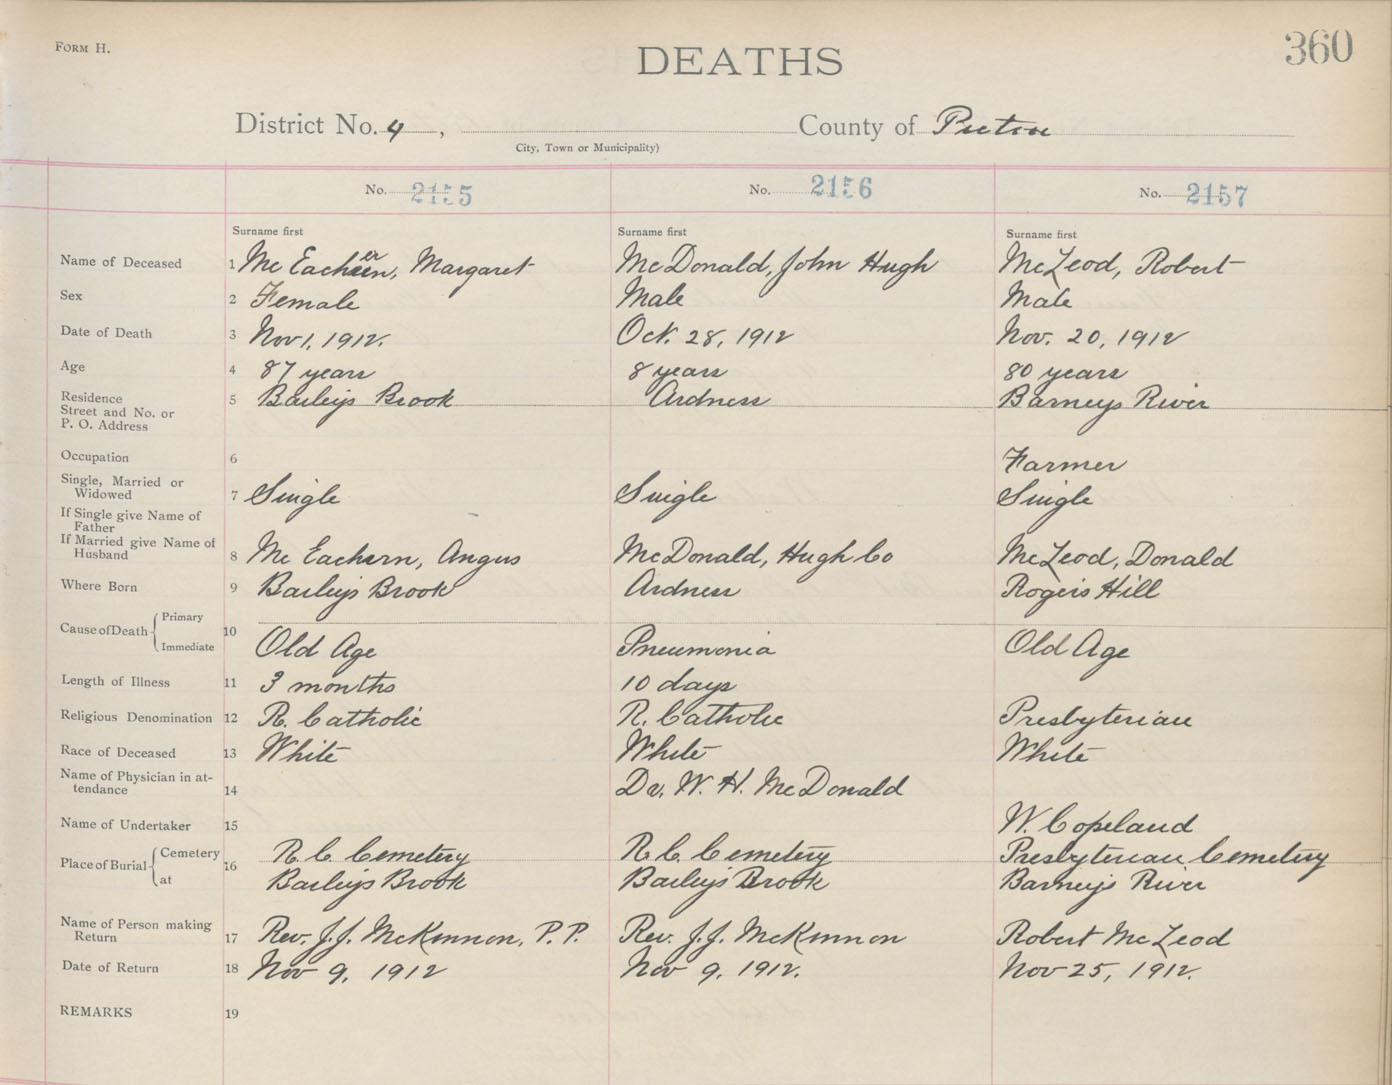 FORM H.
DEATHS
360
District No. 4, County of Pictou
City, Town or Municipality)
No. 2155 No. 2156 No. 2157
Surname first Surname first Surname first
Name of Deceased 1 Mc Eachern, Margaret McDonald, John Hugh McLeod, Robert
Sex 2 Female Male Male
Date of Death 3 Nov 1, 1912. Oct. 28, 1912 Nov. 20, 1912
Age 4 87 years 8 years 80 years
Residence 5 Baileys Brook Ardness Barneys River
Street and No. or
P. O. Address
Occupation 6 Farmer
Single, Married or
Widowed 7 Single Single Single
If Single give Name of
Father
If Married give Name of
Husband 8 Mc Eachern, Angus McDonald, Hugh Co McLeod, Donald
Where Born 9 Baileys Brook Ardness Rogers Hill
Cause of Death Primary 10
Immediate Old Age Pneumonia Old Age
Length of Illness 11 3 months 10 days
Religious Denomination 12 R. Catholic R. Catholic Presbyterian
Race of Deceased 13 White White White
Name of Physician in at-
tendance 14 Dr. W. H. McDonald
Name of Undertaker 15 W. Copeland
Place of Burial Cemetery 16 R. C. Cemetery R. C. Cemetery Presbyterian Cemetery
at Baileys Brook Bailey's Brook Barneys River
Name of Person making
Return 17 Rev. J. J. McKinnon, P. P. Rev. J. J. McKinnon Robert McLeod
Date of Return 18 Nov 9, 1912 Nov 9, 1912. Nov 25, 1912.
REMARKS 19